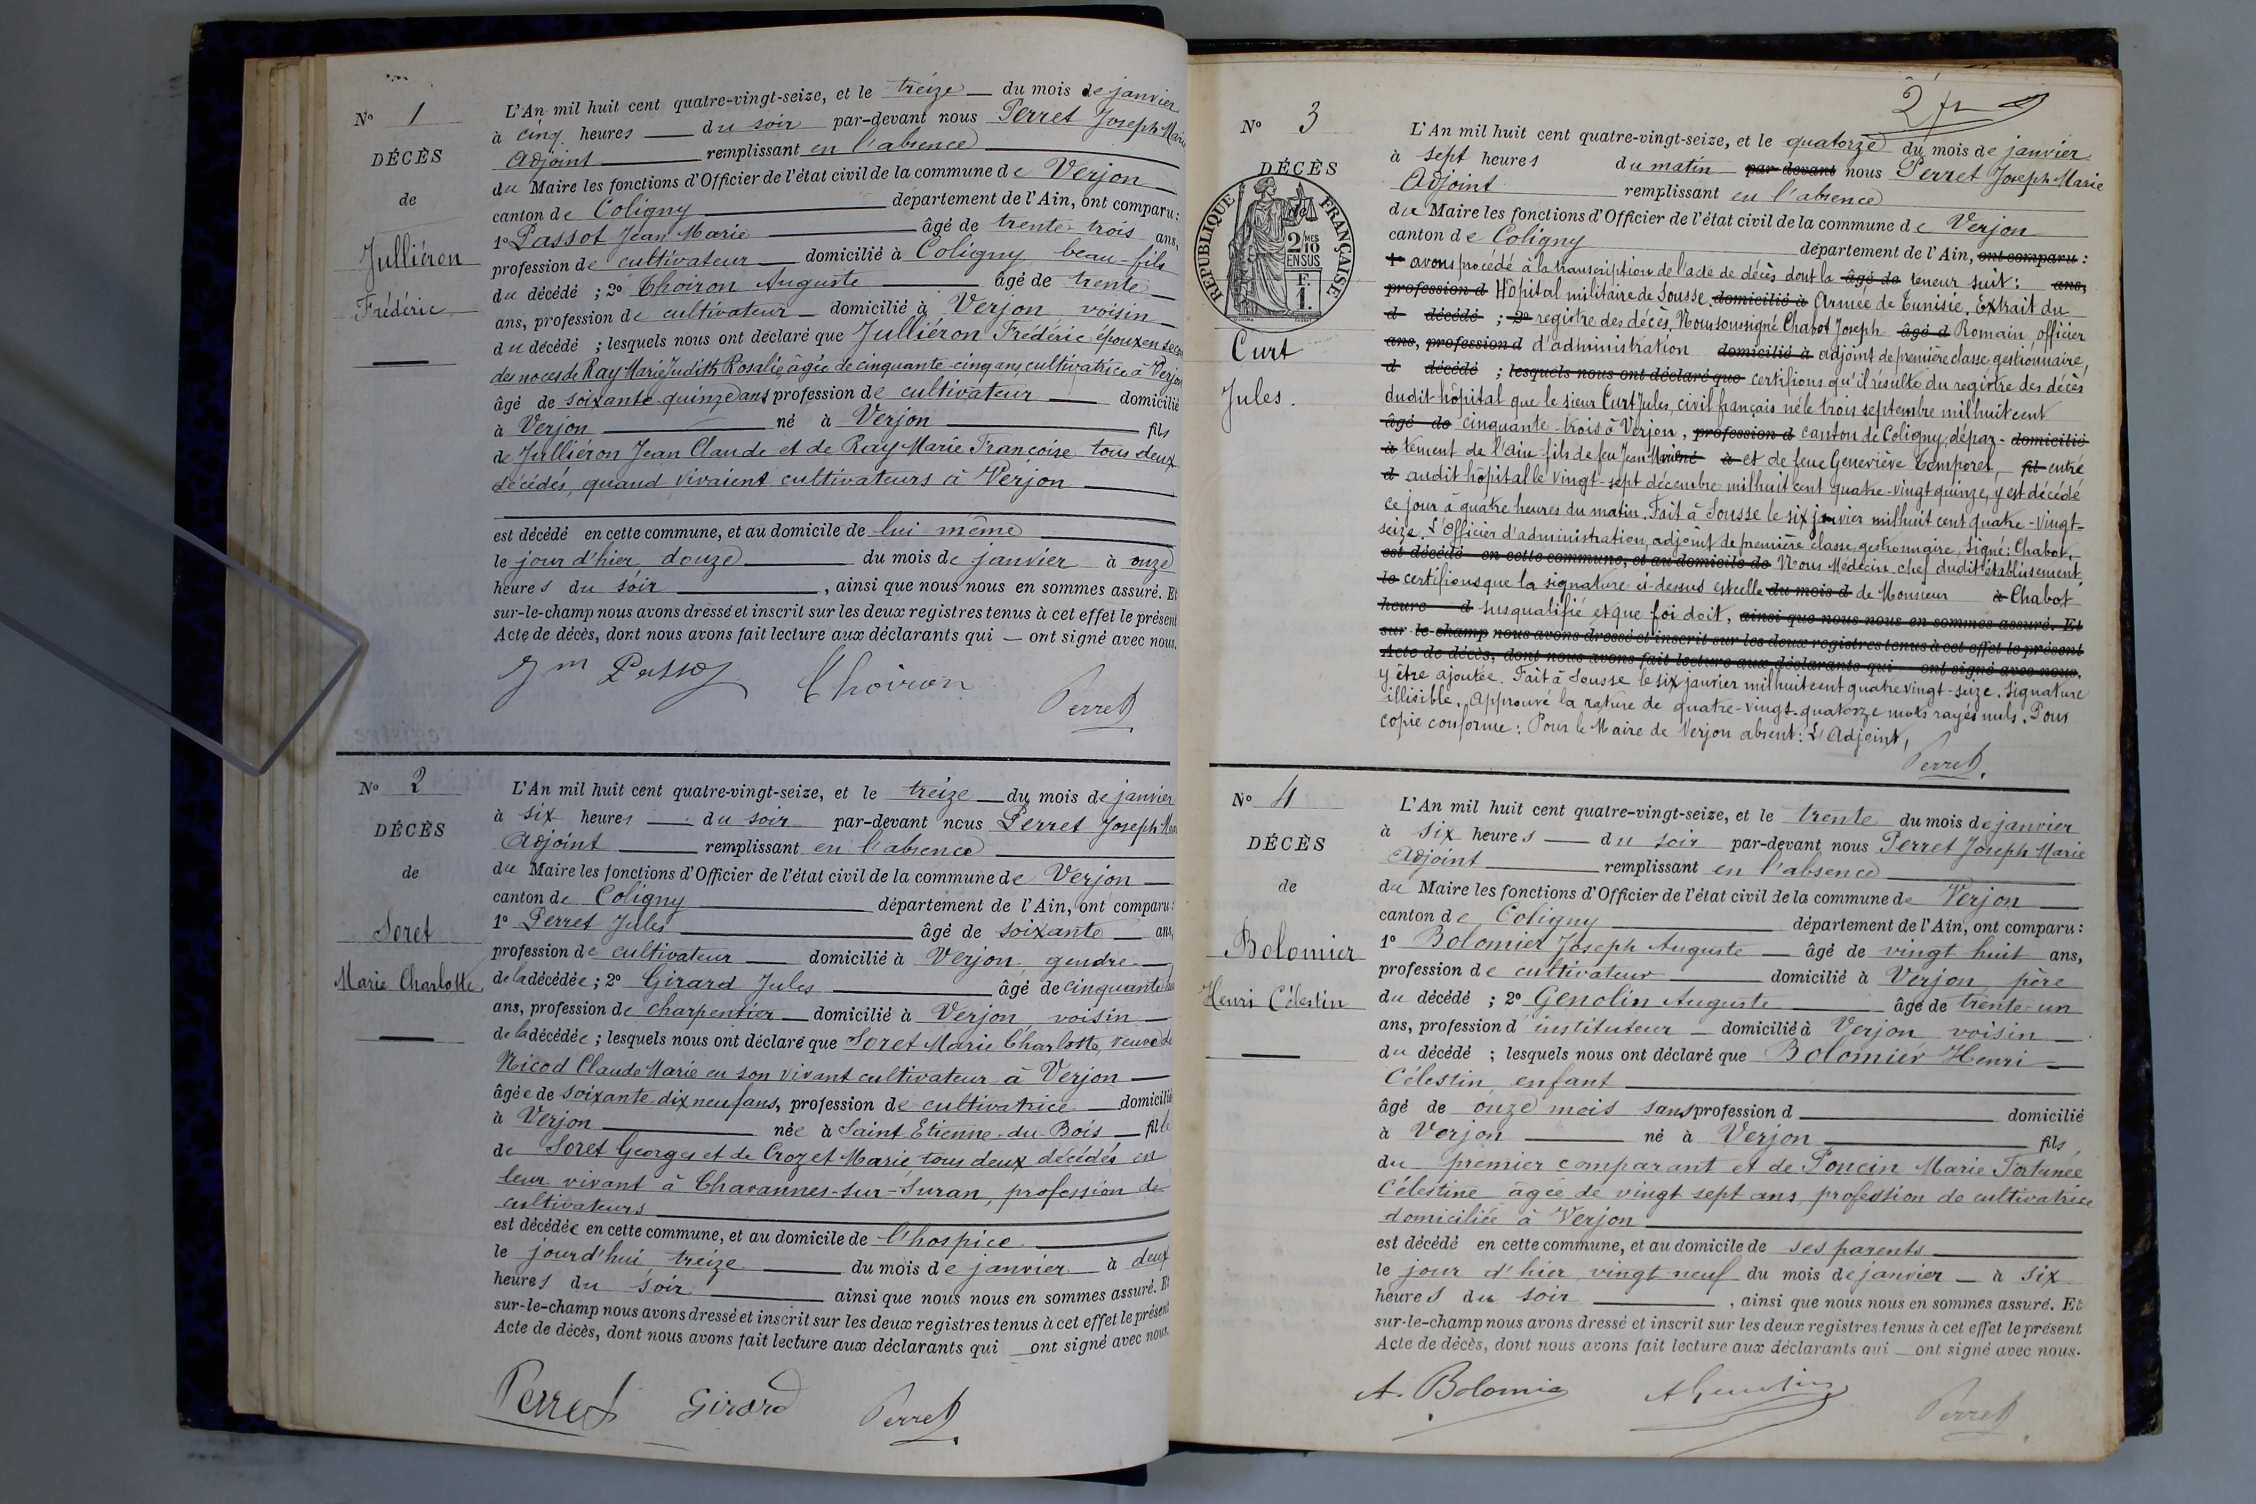 N° 1
DÉCÈS
de
Julliéron
Frédéric
L'An mil huit cent quatre-vingt-seize, et le treize du mois de janvier
à cinq heures du soir par-devant nous Perret Joseph Marie
Adjoint remplissant en l'absence
du Maire les fonctions d'Officier de l'état civil de la commune de Verjon
canton de Coligny département de l'Ain, ont comparu :
1° Passot Jean Marie âgé de trente-trois ans,
profession de cultivateur domicilié à Coligny beau-fils
du décédé ; 2° Choiron Auguste âgé de trente
ans, profession de cultivateur domicilié à Verjon voisin
du décédé ; lesquels nous ont déclaré que Julliéron Frédéric époux en
des noces de Ray Marie Judith Rosalie, âgée de cinquante-cinq ans cultivatrice à Verjon
âgé de soixante-quinze ans profession de cultivateur domicilié
à Verjon né à Verjon fils
de Julliéron Jean Claude et de Ray Marie Françoise tous deux
décédés, quand vivaient cultivateurs à Verjon
est décédé en cette commune, et au domicile de lui même
le jour d'hier douze du mois de janvier à onze
heures du soir , ainsi que nous nous en sommes assuré. Et
sur-le-champ nous avons dressé et inscrit sur les deux registres tenus à cet effet le présent
Acte de décès, dont nous avons fait lecture aux déclarants qui ont signé avec nous.
Jm Passot Choiron Perret
N° 2
DÉCÈS
de
Soret
Marie Charlotte
L'An mil huit cent quatre-vingt-seize, et le treize du mois de janvier
à six heures du soir par-devant nous Perret Joseph
Adjoint remplissant en l'absence
du Maire les fonctions d'Officier de l'état civil de la commune de Verjon
canton de Coligny département de l'Ain, ont comparu :
1° Perret Jules âgé de soixante ans,
profession de cultivateur domicilié à Verjon gendre
de la décédée ; 2° Girard Jules âgé de cinquante
ans, profession de charpentier domicilié à Verjon voisin
de la décédée ; lesquels nous ont déclaré que Soret Marie Charlotte, veuve de
Nicod Claude Marie en son vivant cultivateur à Verjon
âgée de soixante dix neuf ans, profession de cultivatrice domicilié
à Verjon née à Saint Etienne-du-Bois fille
de Soret Georges et de Crozet Marie, tous deux décédés en
leur vivant à Chavannes-sur-Suran, profession de
cultivateurs
est décédée en cette commune, et au domicile de l'hospice
le jourd'hui treize du mois de janvier à deux
heures du soir ainsi que nous nous en sommes assuré. Et
sur-le-champ nous avons dressé et inscrit sur les deux registres tenus à cet effet le présent
Acte de décès, dont nous avons fait lecture aux déclarants qui ont signé avec nous.
Perret Girard Perret
2
N° 3
DÉCÈS
de
RÉPUBLIQUE FRANÇAISE
2/10MES
EN SUS
F.
1.
Curt
Jules.
L'An mil huit cent quatre-vingt-seize, et le quatorze du mois de janvier
à sept heures du matin par-devant nous Perret Joseph Marie
Adjoint remplissant en l'absence
du Maire les fonctions d'Officier de l'état civil de la commune de Verjon
canton de Coligny département de l'Ain, ont comparu :
1° avons procédé à la transcription de l'acte de décès dont la âgé de teneur suit : ans,
profession d Hôpital militaire de Sousse. domicilié à Armée de Tunisie. Extrait du
d décédé ; 2° registre des décès. Nous soussigné Chabot Joseph âgé d Romain officier
ans, profession d d'administration domicilié à adjoint de première classe, gestionnaire,
d décédé ; lesquels nous ont déclaré que certifions qu'il résulte du registre des décès
dudit hôpital que le sieur Curt Jules, civil français né le trois septembre mil huit cent
âgé de cinquante-trois à Verjon, profession d canton de Coligny, dépar- domicilié
à tement de l'Ain fils de feu Jean Marie né à et de feue Geneviève Temporel, fil entré
d audit hôpital le vingt-sept décembre mil huit cent quatre-vingt quinze, y est décédé
ce jour à quatre heures du matin. Fait à Sousse le six janvier mil huit cent quatre-vingt-
seize. L'Officier d'administration, adjoint de première classe, gestionnaire, Signé : Chabot.
est décédé en cette commune, et au domicile de Nous Médecin chef dudit établissement
le certifions que la signature ci-dessus est celle du mois d de Monsieur à Chabot
heure d susqualifié et que foi doit, ainsi que nous nous en sommes assuré. Et
sur-le-champ nous avons dressé et inscrit sur les deux registres tenus à cet effet le présent
Acte de décès, dont nous avons fait lecture aux déclarants qui ont signé avec nous.
y être ajoutée. Fait à Sousse le six janvier mil huit cent quatre vingt-seize. Signature
illisible. Approuvé la rature de quatre-vingt-quatorze mots rayés nuls. Pour
copie conforme : Pour le Maire de Verjon absent : L'Adjoint,
Perret
N° 4
DÉCÈS
de
Bolomier
Henri Célestin
L'An mil huit cent quatre-vingt-seize, et le trente du mois de janvier
à six heures du soir par-devant nous Perret Joseph Marie
Adjoint remplissant en l'absence
du Maire les fonctions d'Officier de l'état civil de la commune de Verjon
canton de Coligny département de l'Ain, ont comparu :
1° Bolomier Joseph Auguste âgé de vingt huit ans,
profession de cultivateur domicilié à Verjon père
du décédé ; 2° Genolin Auguste âgé de trente-un
ans, profession d instituteur domicilié à Verjon voisin
du décédé ; lesquels nous ont déclaré que Bolomier Henri
Célestin enfant
âgé de onze mois sans profession d domicilié
à Verjon né à Verjon fils
du premier comparant et de Poncin Marie Fortunée
Célestine âgée de vingt sept ans, profession de cultivatrice
domiciliée à Verjon
est décédé en cette commune, et au domicile de ses parents
le jour d'hier vingt neuf du mois de janvier à six
heures du soir , ainsi que nous nous en sommes assuré. Et
sur-le-champ nous avons dressé et inscrit sur les deux registres tenus à cet effet le présent
Acte de décès, dont nous avons fait lecture aux déclarants qui ont signé avec nous.
A. Bolomier A Genolin Perret